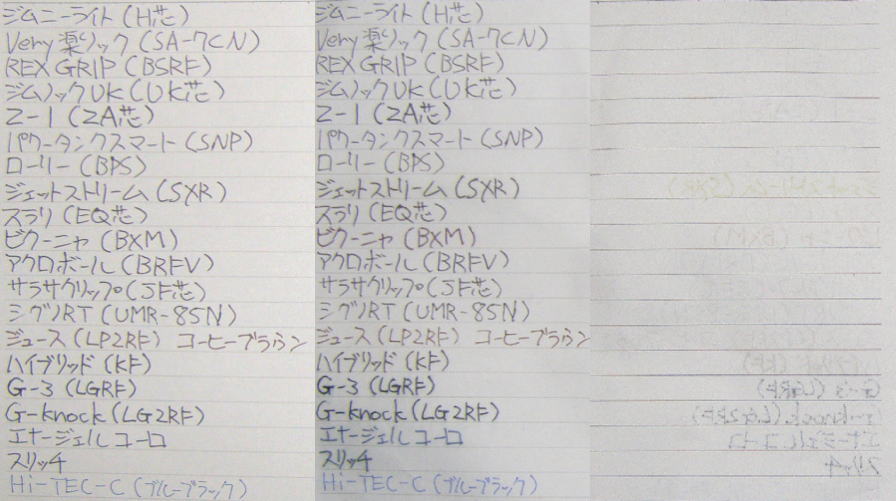 ジムニーライト(H芯)
Very楽ノック(SA-7CN)
REX GRIP(BSRF)
ジムノックUK(UK芯)
Z-1(ZA芯)
パワータンクスマート(SNP)
ローリー(BPS)
ジェットストリーム(SXR)
スラリ(EQ芯)
ビクーニャ(BXM)
アクロボール(BRFV)
サラサクリップ(JF芯)
シグノRT(UMR-85N)
ジュース(LP2RF) コーヒーブラウン
ハイブリッド(KF)
G-3(LGRF)
G-knock(LG2RF)
エナージェル ユーロ
スリッチ
Hi-TEC-C(ブルーブラック)
ジムニーライト(H芯)
Very楽ノック(SA-7CN)
REX GRIP(BSRF)
ジムノックUK(UK芯)
Z-1(ZA芯)
パワータンクスマート(SNP)
ローリー(BPS)
ジェットストリーム(SXR)
スラリ(EQ芯)
ビクーニャ(BXM)
アクロボール(BRFV)
サラサクリップ(JF芯)
シグノRT(UMR-85N)
ジュース(LP2RF) コーヒーブラウン
ハイブリッド(KF)
G-3(LGRF)
G-knock(LG2RF)
エナージェル ユーロ
スリッチ
Hi-TEC-C(ブルーブラック)
ジェットストリーム(SXR)
ビクーニャ(BXM)
ハイブリッド(KF)
G-3(LGRF)
G-knock(LG2RF)
エナージェル ユーロ
スリッチ